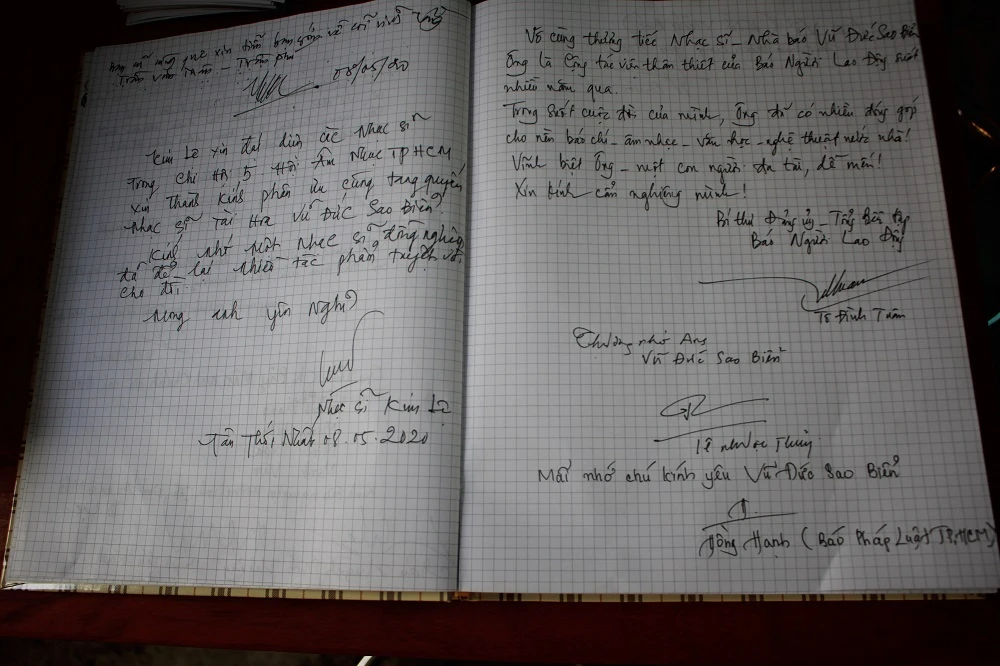 xin tiễn bạn
Trần Phú
08/05/2020
Kim Lệ xin đại diện các Nhạc sĩ
Trong chi Hội 5 Hội Âm Nhạc TPHCM
xin Thành kính phân ưu cùng tang quyến
Nhạc sĩ Tài Hoa Vũ Đức Sao Biển.
Kính nhớ một nhạc sĩ đồng nghiệp
đã để lại nhiều tác phẩm tuyệt vời
cho đời.
Mong anh yên nghỉ
Nhạc sĩ Kim Lệ
Tân Thới Nhất 08.05.2020
Vô cùng thương tiếc Nhạc sĩ - Nhà báo Vũ Đức Sao Biển
Ông là Cộng tác viên thân thiết của Báo Người Lao Động suốt
nhiều năm qua.
Trong suốt cuộc đời của mình, ông đã có nhiều đóng góp
cho nền báo chí - âm nhạc - văn học - nghệ thuật nước nhà!
Vĩnh biệt Ông - một con người đa tài, dễ mến!
Xin kính cẩn nghiêng mình!
Bí thư Đảng ủy - Tổng Biên tập
Báo Người Lao Động
Tô Đình Tuân
Thương nhớ Anh
Vũ Đức Sao Biển
Lê Thủy
Mãi nhớ chú kính yêu Vũ Đức Sao Biển
Hồng Hạnh (Báo Pháp Luật TP.HCM)